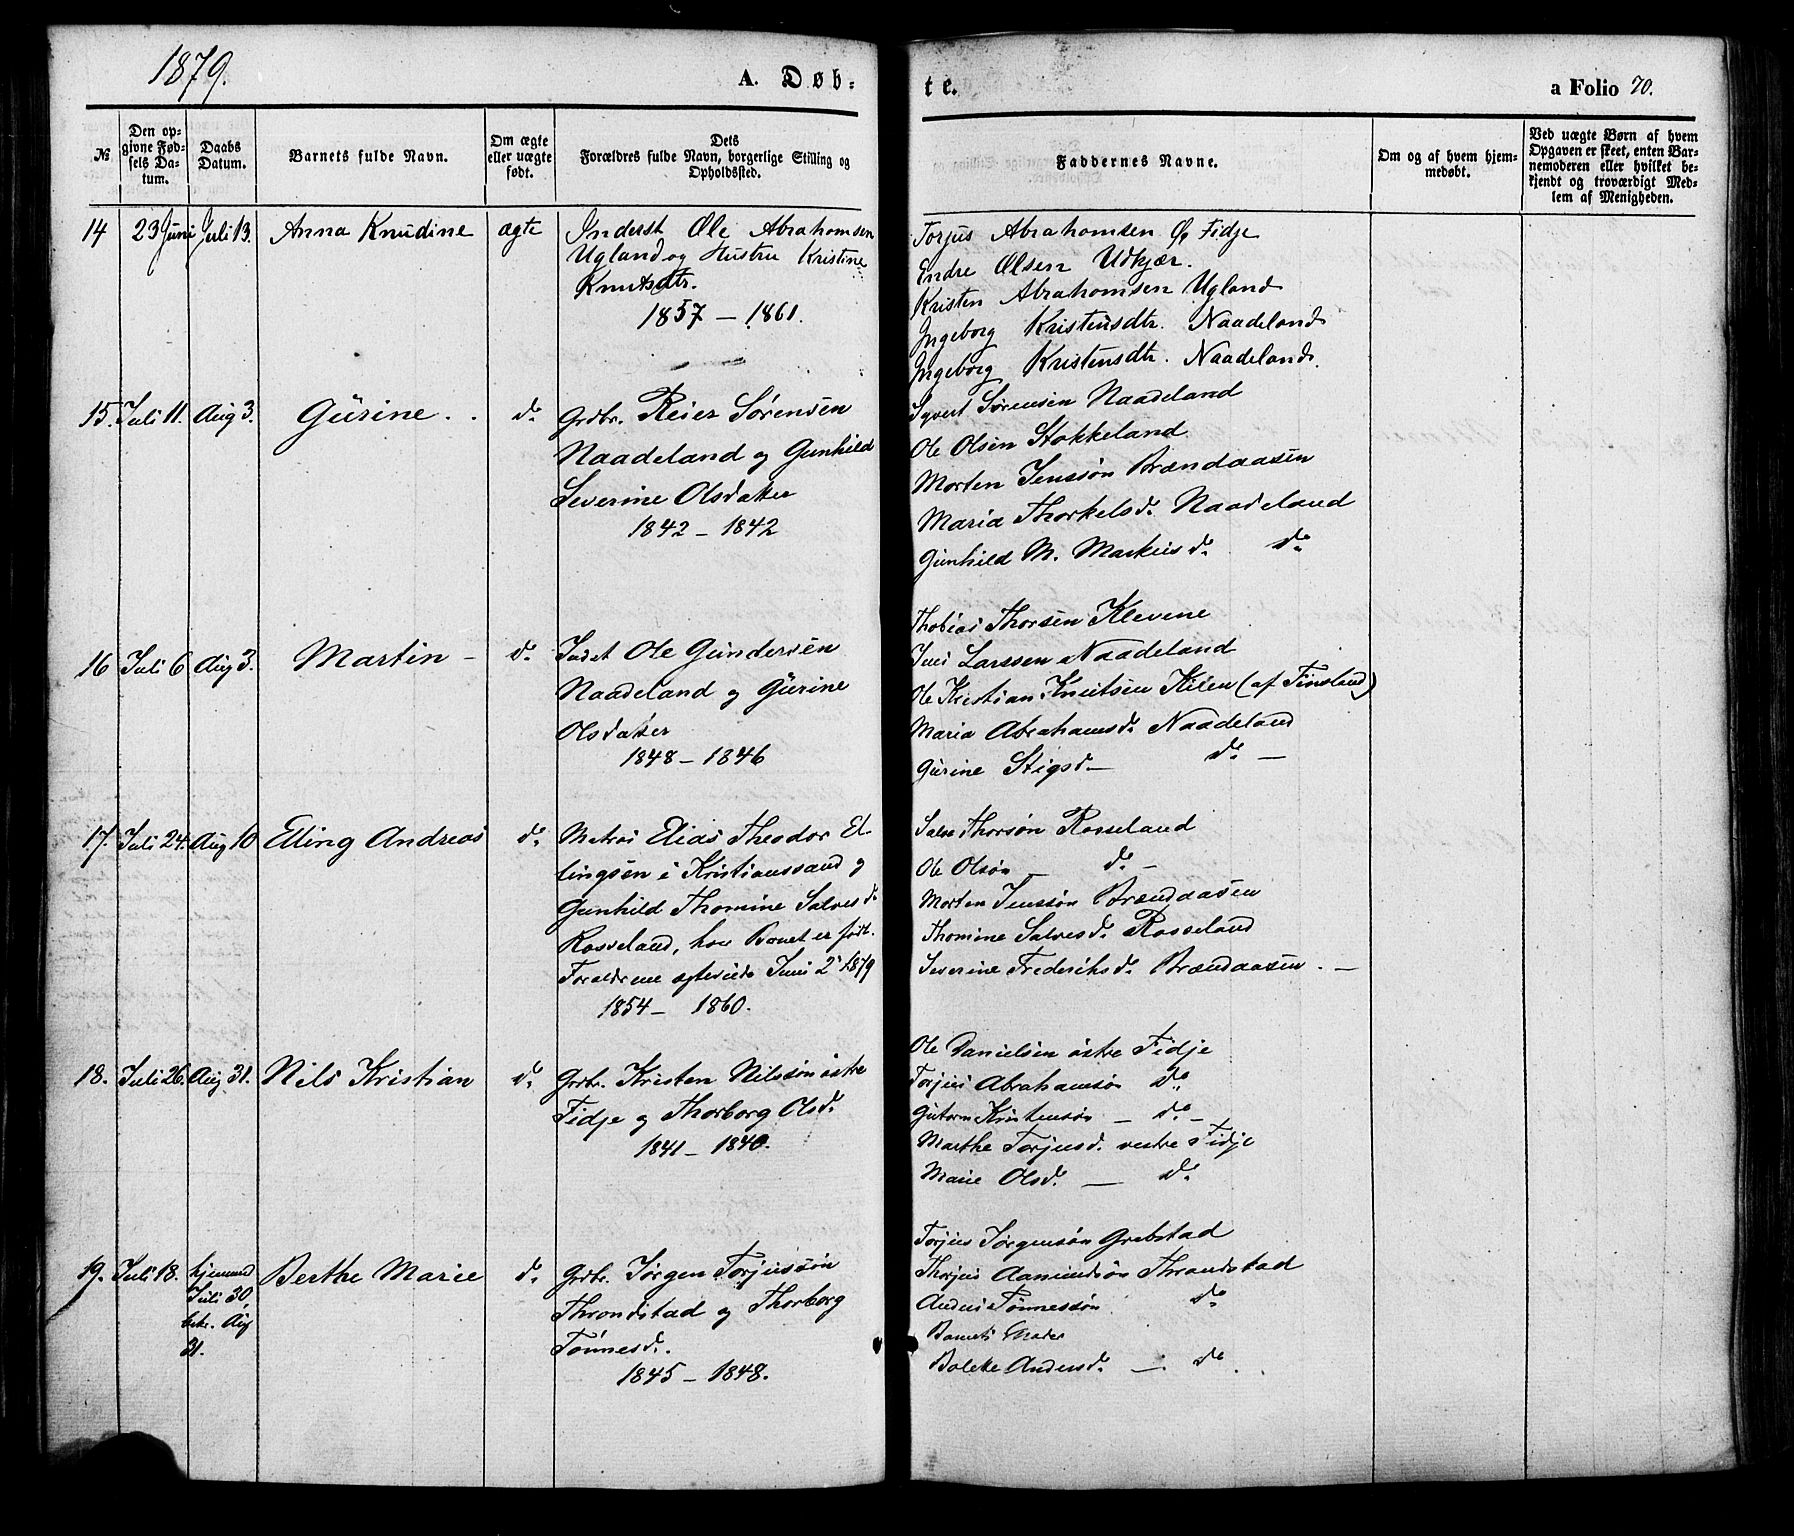 1879.
A. Døb-
te.
a Folio 70.
№
Den op-
givne Fød-
sels Da-
tum.
Daabs
Datum.
Barnets fulde Navn.
Om ægte
eller uægte
født.
Dets
Forældres fulde Navn, borgerlige Stilling og
Opholdssted.
Faddernes Navne.
Om og af hvem hjem-
medøbt.
Ved uægte Børn af hvem
Opgaven er skeet, enten Bar-
nemoderen eller hvilket be-
kjendt og troværdigt Med-
lem af Menigheden.
14 23 Juni Juli 13. Anna Knudine ægte
Inderst Ole Abrahamsen
Ugland og Hustru Kristine
Knutsdtr.
1857 – 1861.
Torjus Abrahamsen Ø. Fidje
Endre Olsen Udkjær.
Kristen Abrahamsen Ugland
Ingeborg Kristensdtr. Naadeland
Ingeborg Kristensdtr. Naadeland.
15. Juli 11. Aug 3. Gurine. d.
Grdbr. Reier Sørensen
Naadeland og Gunhild
Severine Olsdatter
1842 – 1842
Syvert Sørensen Naadeland
Ole Olsen Stokkeland
Morten Jenssøn Brændaasen
Maria Thorkelsd. Naadeland
Gunhild M. Markusd. d.
16 Juli 6 Aug 3. Martin – d.
Indst Ole Gundersen
Naadeland og Gurine
Olsdatter
1848 – 1846
Thobias Thorsen Klevene
Jens Larssen Naadeland
Ole Kristian Knutsen Kilen (af Finsland)
Maria Abrahamsd. Naadeland
Gurine Stigsd – d. –
17. Juli 24. Aug 10 Elling Andreas d.
Matros Elias Theodor El-
lingsen i Kristianssand og
Gunhild Thomine Salvesd.
Rosseland, hvor Barnet er født.
Forældrene ægteviede Juni 2 1879
1854 – 1860.
Salve Thorsøn Rosseland
Ole Olsøn – d. –
Morten Jenssøn Brændaasen
Thomine Salvesd. Rosseland
Severine Frederiksd. Brændaasen. –
18. Juli 26. Aug 31. Nils Kristian d.
Grdbr. Kristen Nilssøn østre
Fidje og Thorborg Olsd.
1841 – 1840.
Ole Danielsen østre Fidje
Torjus Abrahamsøn d.
Gutorm Kristensøn – d. –
Marthe Torjusd. vestre Fidje
Marie Olsd. – d.
19. Juli 18. hjemmed
Juli 30
bekr. Aug
31.
Berthe Marie d.
Grdbr. Jørgen Torjussøn
Throndstad og Thorborg
Tønnesd.
1845 – 1848.
Torjus Jørgensøn Grebstad
Thorjus Aamundsøn Throndstad
Anders Tønnessøn d.
Barnets Moder
Bolette Andersd. – d.